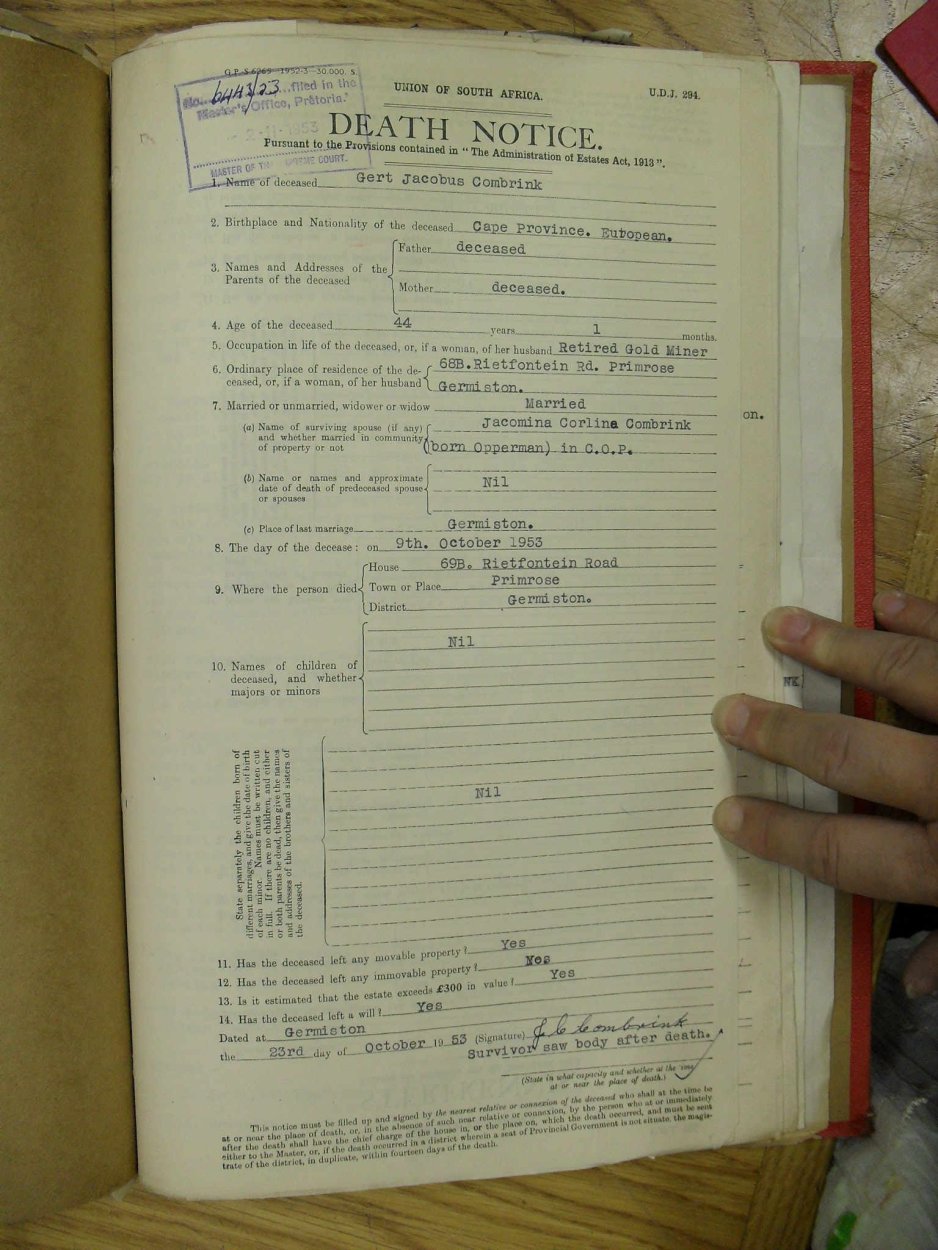 G.P.-S.6269—1952-3—30,000. S.
UNION OF SOUTH AFRICA.
U.D.J. 294.
No. 6443/53 filed in the
Master's Office, Pretoria.
2-11-1953
MASTER OF THE SUPREME COURT.
DEATH NOTICE.
Pursuant to the Provisions contained in "The Administration of Estates Act, 1913".
1. Name of deceased Gert Jacobus Combrink
2. Birthplace and Nationality of the deceased Cape Province. European.
3. Names and Addresses of the Parents of the deceased
Father deceased
Mother deceased.
4. Age of the deceased 44 years 1 months.
5. Occupation in life of the deceased, or, if a woman, of her husband Retired Gold Miner
6. Ordinary place of residence of the de-
ceased, or, if a woman, of her husband
68B. Rietfontein Rd. Primrose
Germiston.
7. Married or unmarried, widower or widow Married
on.
(a) Name of surviving spouse (if any)
and whether married in community
of property or not
Jacomina Corlina Combrink
(born Opperman) in C.O.P.
(b) Name or names and approximate
date of death of predeceased spouse
or spouses
Nil
(c) Place of last marriage Germiston.
8. The day of the decease: on 9th. October 1953
9. Where the person died
House 69B. Rietfontein Road
Town or Place Primrose
District Germiston.
10. Names of children of
deceased, and whether
majors or minors
Nil
NK.
State separately the children born of
different marriages, and give the date of birth
of each minor. Names must be written out
in full. If there are no children, and either
or both parents be dead, then give the names
and addresses of the brothers and sisters of
the deceased.
Nil
11. Has the deceased left any movable property? Yes
12. Has the deceased left any immovable property?
13. Is it estimated that the estate exceeds £300 in value? Yes
14. Has the deceased left a will? Yes
Dated at Germiston
the 23rd day of October 19 53 (Signature) J C Combrink
Survivor saw body after death.
(State in what capacity and whether at the time
at or near the place of death.)
This notice must be filled up and signed by the nearest relative or connexion of the deceased who shall at the time be
at or near the place of death, or, in the absence of such near relative or connexion, by the person who at or immediately
after the death shall have the chief charge of the house in, or the place on, which the death occurred, and must be sent
either to the Master, or, if the death occurred in a district wherein a seat of Provincial Government is not situate, the magis-
trate of the district, in duplicate, within fourteen days of the death.